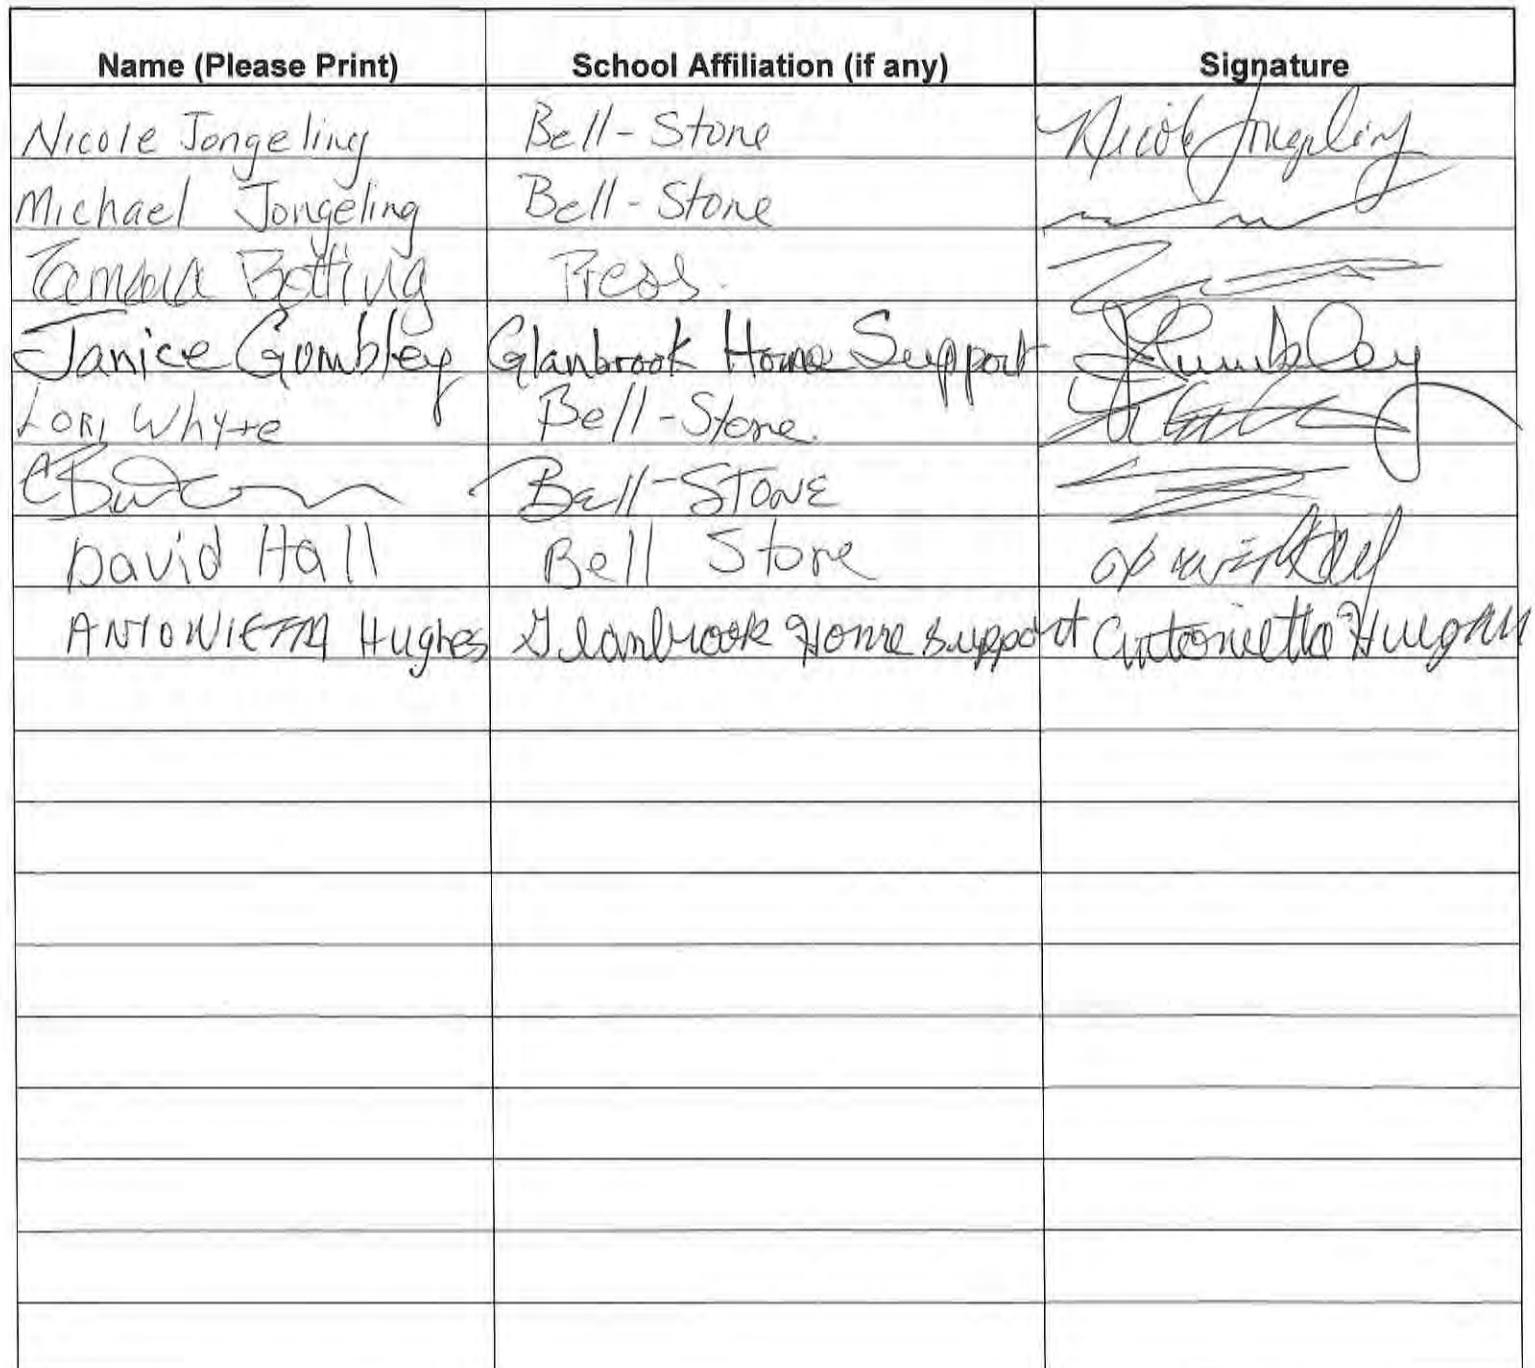 Name (Please Print) School Affiliation (if any) Signature
Nicole Jongeling Bell-Stone Nicole Jongeling
Michael Jongeling Bell-Stone
Tamara Botting Press.
Janice Gombley Glanbrook Home Support
Lori Whyte Bell-Stone
Bell-Stone
David Hall Bell Stone
ANTONIETTA Hughes Glanbrook Home Support Antonietta Hughes